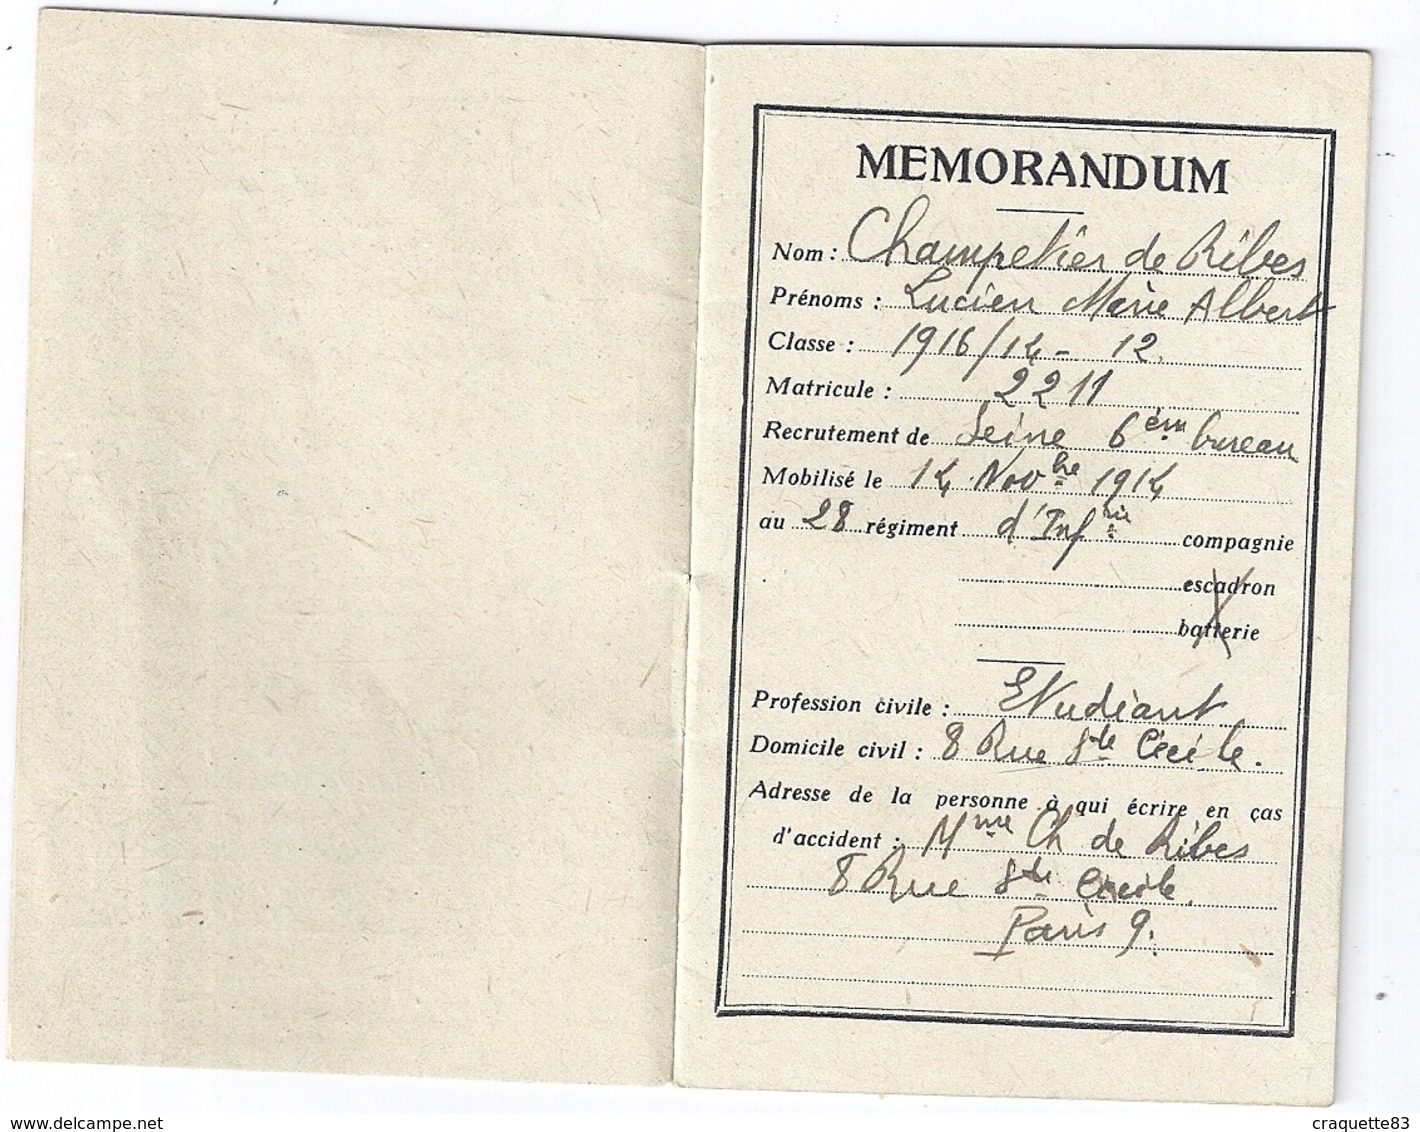 MEMORANDUM
Nom : Champetier de Ribes
Prénoms : Lucien Marie Albert
Classe : 1916/14 - 12.
Matricule : 2211
Recrutement de Seine 6èm bureau
Mobilisé le 14 Novbre 1914
au 28 régiment d'Infrie compagnie
escadron
batterie
Profession civile : Etudiant
Domicile civil : 8 Rue Ste Cécile.
Adresse de la personne à qui écrire en ças
d'accident : Mme Ch de Ribes
8 Rue Ste Cécile.
Paris 9.
www.delcampe.net
craquette83